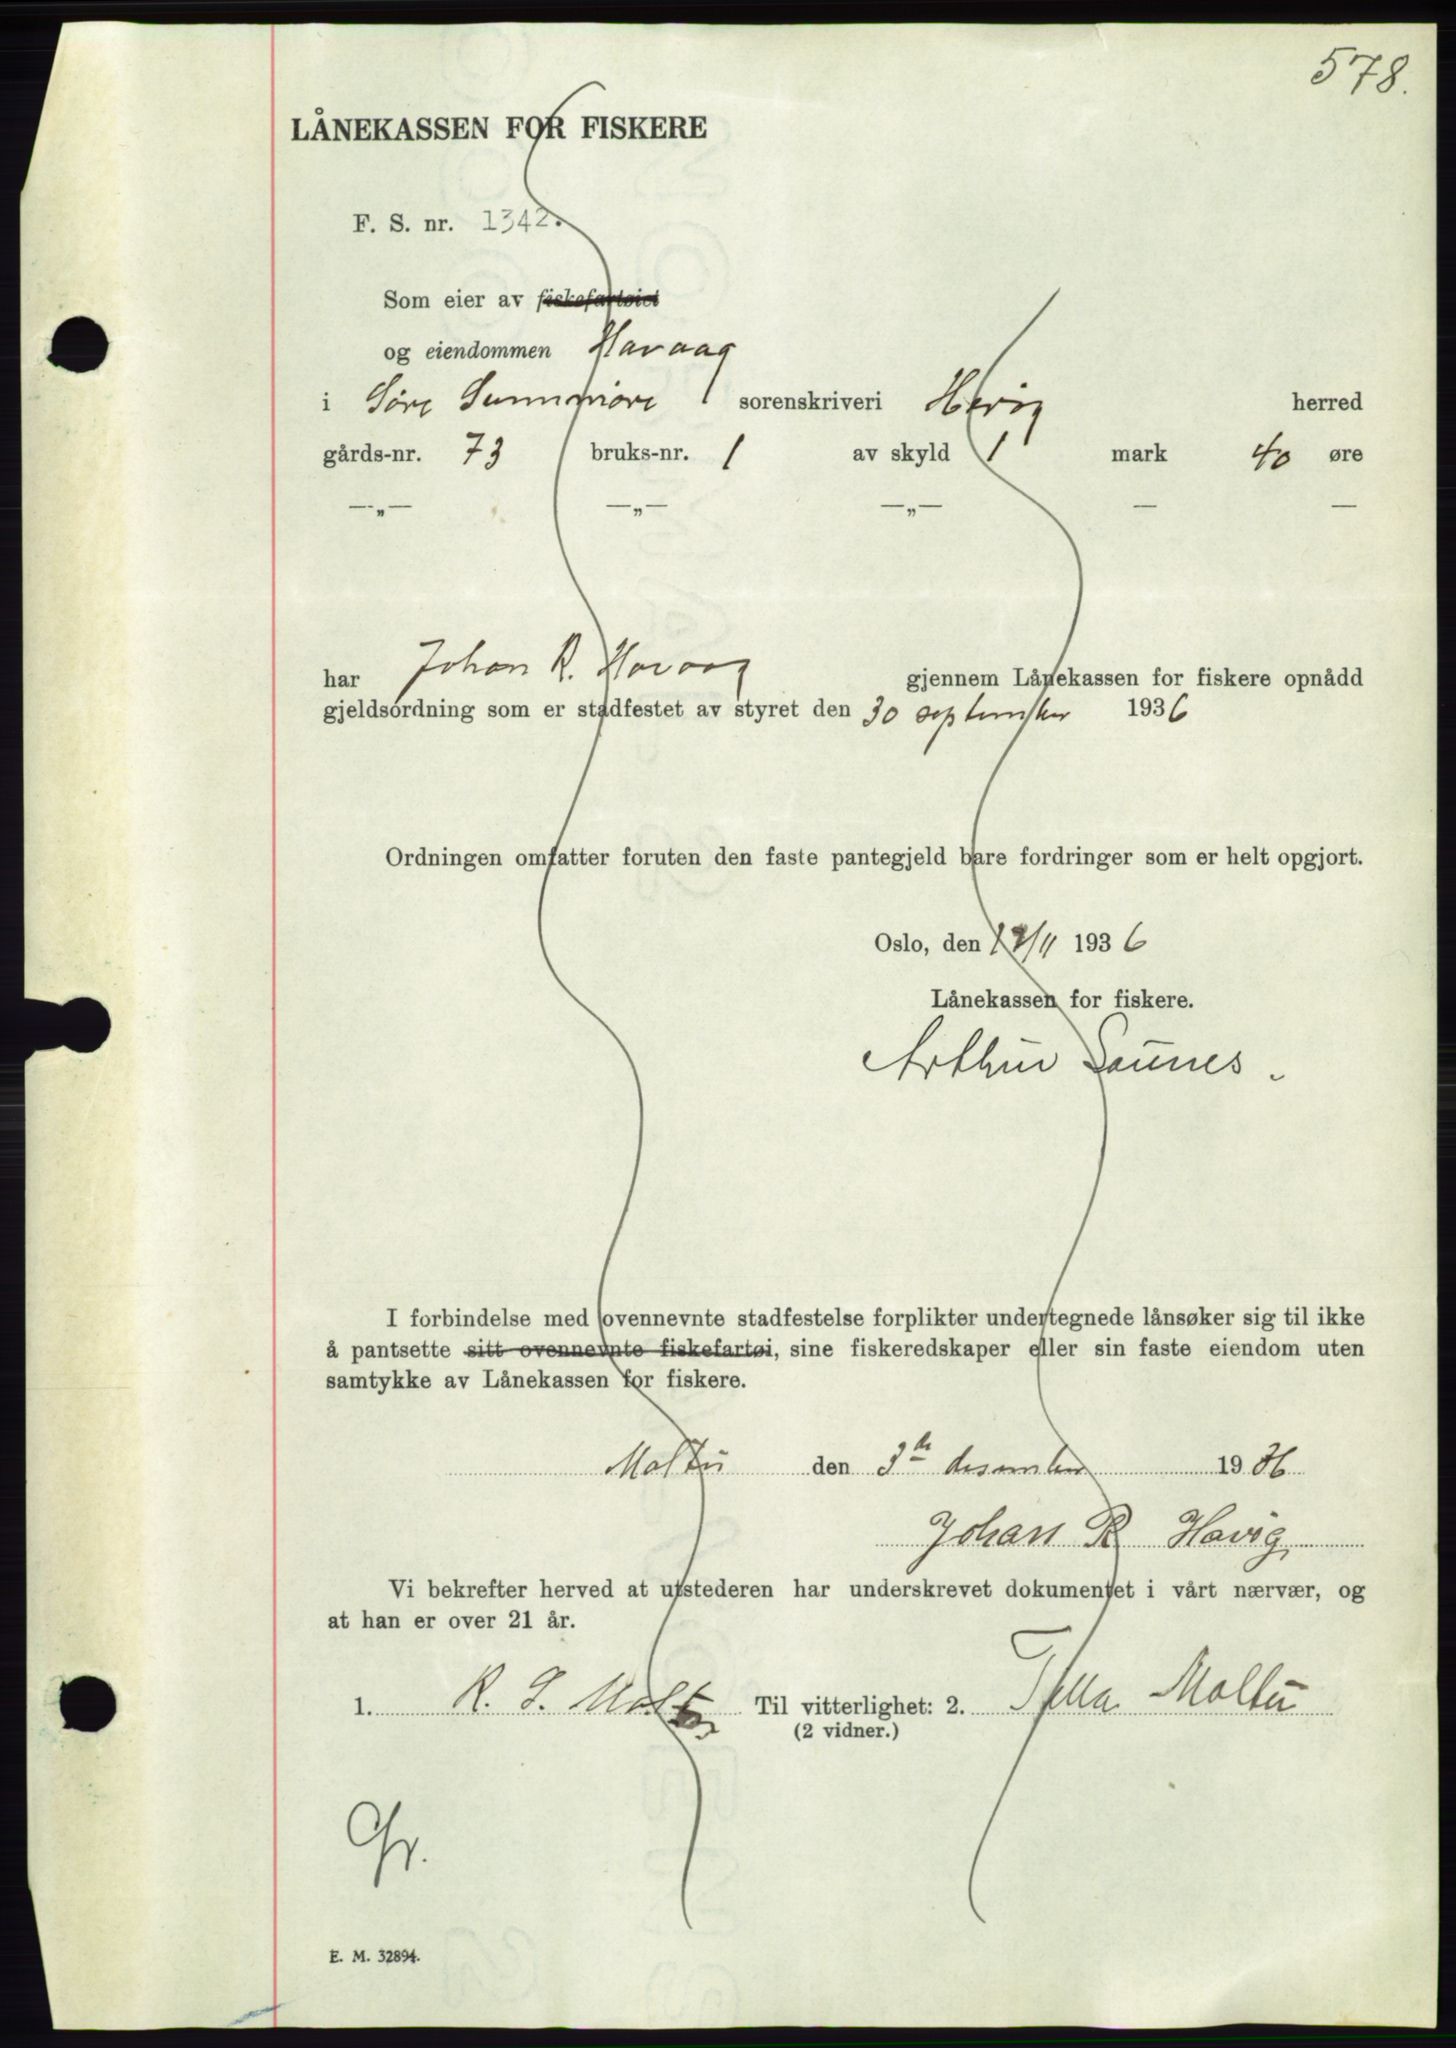 578.
LÅNEKASSEN FOR FISKERE
F. S. nr. 1342.
Som eier av fiskefartøiet
og eiendommen Havaag
i Søre Sunnmøre sorenskriveri Herøy herred
gårds-nr. 73 bruks-nr. 1 av skyld 1 mark 40 øre
—„— —„— —„— — —
har Johan R. Havaag gjennem Lånekassen for fiskere opnådd
gjeldsordning som er stadfestet av styret den 30 september 1936
Ordningen omfatter foruten den faste pantegjeld bare fordringer som er helt opgjort.
Oslo, den /11 1936
Lånekassen for fiskere.
Arthur Sounes.
I forbindelse med ovennevnte stadfestelse forplikter undertegnede lånsøker sig til ikke
å pantsette sitt ovennevnte fiskefartøi, sine fiskeredskaper eller sin faste eiendom uten
samtykke av Lånekassen for fiskere.
Moltu den 3de desember 1936
Johan R Havåg
Vi bekrefter herved at utstederen har underskrevet dokumentet i vårt nærvær, og
at han er over 21 år.
1. R. S. Moltu Til vitterlighet: 2. Moltu
(2 vidner.)
E. M. 32894.